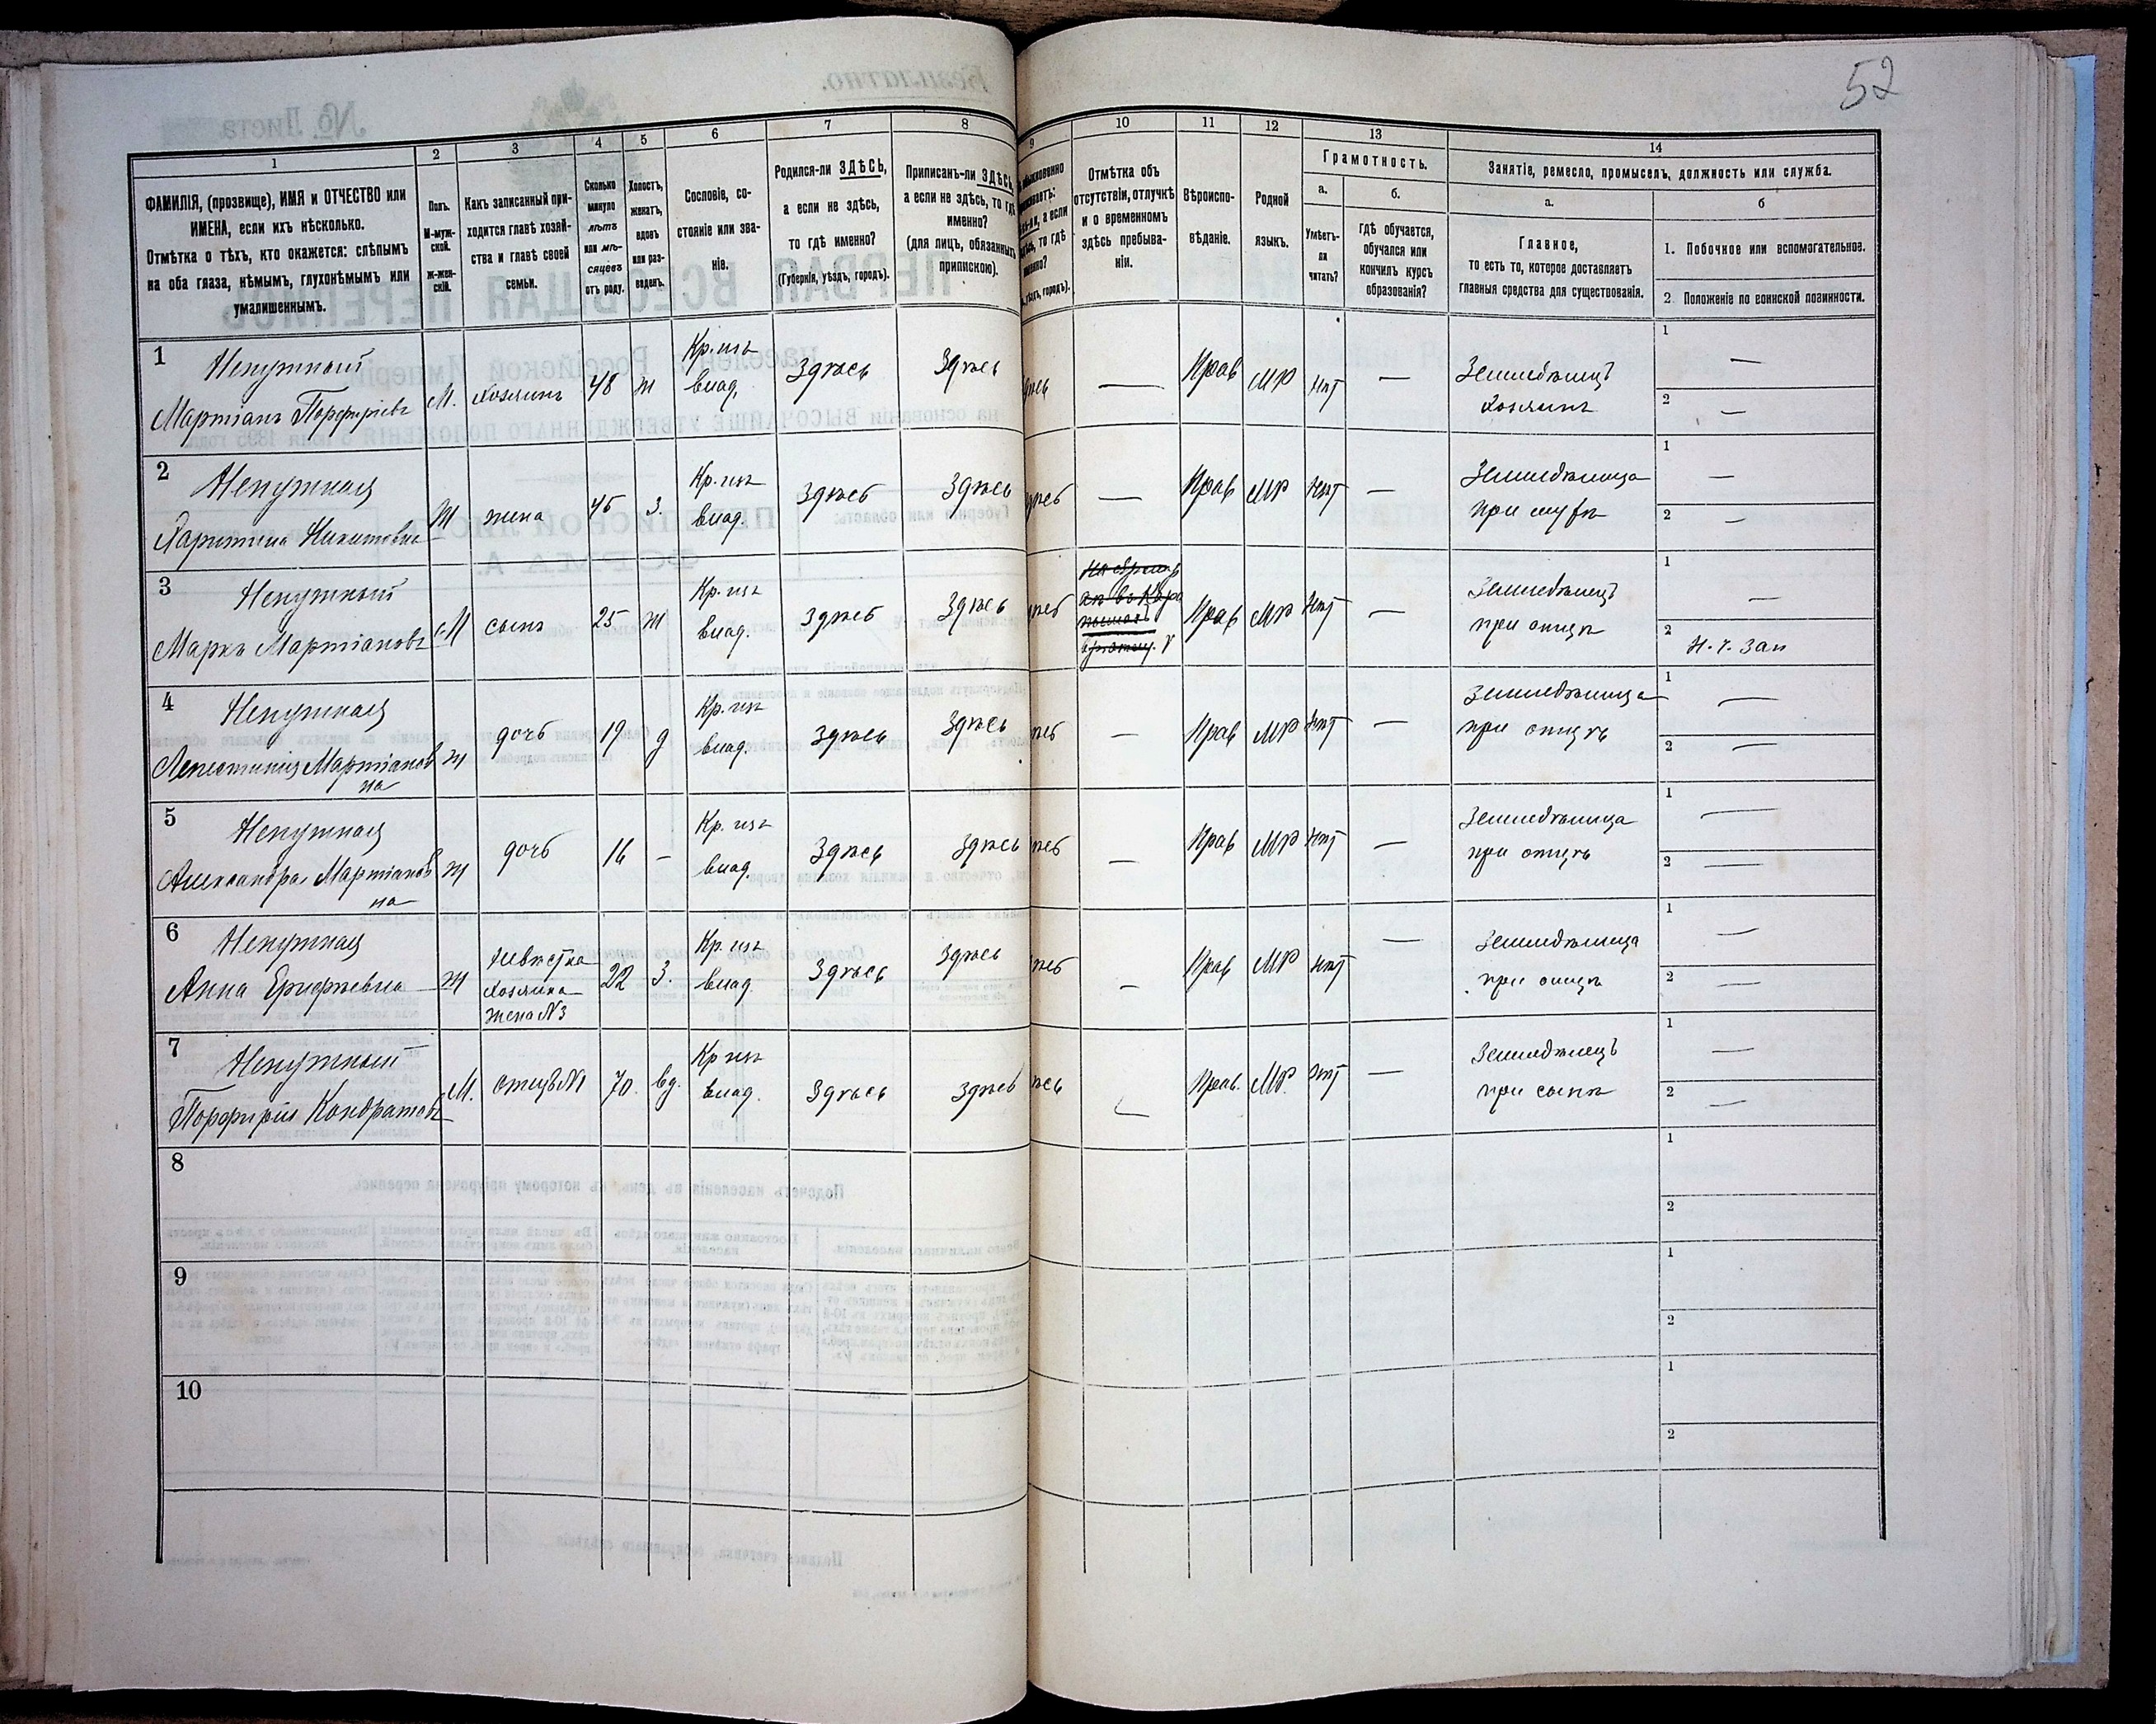 52
1 2 3 4 5 6 7 8 9 10 11 12 13 14
ФАМИЛІЯ, (прозвище), ИМЯ и ОТЧЕСТВО или
ИМЕНА, если ихъ нѣсколько.
Отмѣтка о тѣхъ, кто окажется: слѣпымъ
на оба глаза, нѣмымъ, глухонѣмымъ или
умалишеннымъ.
Полъ.
М-муж-
ской.
Ж-жен-
скій.
Какъ записанный при-
ходится главѣ хозяй-
ства и главѣ своей
семьи.
Сколько
минуло
лѣтъ
или мѣ-
сяцевъ
отъ роду.
Холостъ,
женатъ,
вдовъ
или раз-
веденъ.
Сословіе, со-
стояніе или зва-
ніе.
Родился-ли ЗДѢСЬ,
а если не здѣсь,
то гдѣ именно?
(Губернія, уѣздъ, городъ).
Приписанъ-ли ЗДѢСЬ,
а если не здѣсь, то гдѣ
именно?
(для лицъ, обязанныхъ
припискою).
Отмѣтка объ
отсутствіи, отлучкѣ
и о временномъ
здѣсь пребыва-
ніи.
Вѣроиспо-
вѣданіе.
Родной
языкъ.
Грамотность.
а.
Умѣетъ-
ли
читать?
б.
гдѣ обучается,
обучался или
кончилъ курсъ
образованія?
Занятіе, ремесло, промыселъ, должность или служба.
а.
Главное,
то есть то, которое доставляетъ
главныя средства для существованія.
б
1. Побочное или вспомогательное.
2 Положеніе по воинской повинности.
1 Ненужный
Мартіанъ Порфиріевъ
М. Хозяинъ 48 Ж Кр. изъ
влад. Здѣсь Здѣсь — Прав МР Нѣт — Земледѣлецъ
Хозяинъ
1 —
2 —
2 Ненужная
Харитина Никитовна
Ж жена 45 З. Кр. изъ
влад. Здѣсь Здѣсь — Прав МР Нѣт — Земледѣлица
при мужѣ
1 —
2 —
3 Ненужный
Маркъ Мартіановъ
М сынъ 25 Ж Кр. изъ
влад. Здѣсь Здѣсь Прав МР Нѣт — Земледѣлецъ
при отцѣ
1 —
2 Н. Ч. Зап
4 Ненужная
Мартіанов
на
Ж дочь 19 д Кр. изъ
влад. Здѣсь Здѣсь — Прав МР Нѣт — Земледѣлица
при отцѣ
1 —
2 —
5 Ненужная
Александра Мартіанов
на
Ж дочь 16 — Кр. изъ
влад. Здѣсь Здѣсь — Прав МР Нѣт — Земледѣлица
при отцѣ
1 —
2 —
6 Ненужная
Анна
Ж Невѣстка
Хозяина
жена №3
22 З. Кр. изъ
влад. Здѣсь Здѣсь — Прав МР Нѣт — Земледѣлица
при отцѣ
1 —
2 —
7 Ненужный
Порфирій Кондратовъ
М. отецъ №1 70. вд. Кр изъ
влад. Здѣсь Здѣсь — Прав. МР. Нѣт — Земледѣлецъ
при сынѣ
1 —
2 —
8
1
2
9
1
2
10
1
2